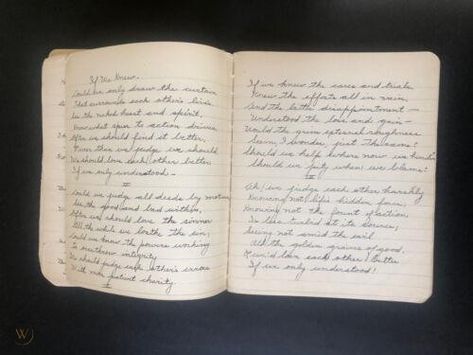 If We Knew.
Could we only draw the curtain
That surrounds each other's lives
See the naked heart and spirit,
Know what spur to action drives
Often we should find it better
Purer than we judge we should
We should love each other better
If we only understood -
II
Could we judge all deeds by motive
See the good and bad within,
Often we should love the sinner
All the while we loathe the sin,
Could we know the powers working
To overthrow integrity
We should judge each other's errors
With more patient charity.
I
If we knew the cares and trials
Knew the efforts all in vain
And the bitter disappointment -
Understood the loss and gain -
Would the grim external roughness
Seem, I wonder, just the same?
Should we help where now we hinder
Should we pity when we blame?
II
Ah, we judge each other harshly
Knowing not life's hidden force,
Knowing not the fount of action
Is less turbid at its source,
Seeing not amid the evil
All the golden grains of good.
We'd love each other better
If we only understood!
W